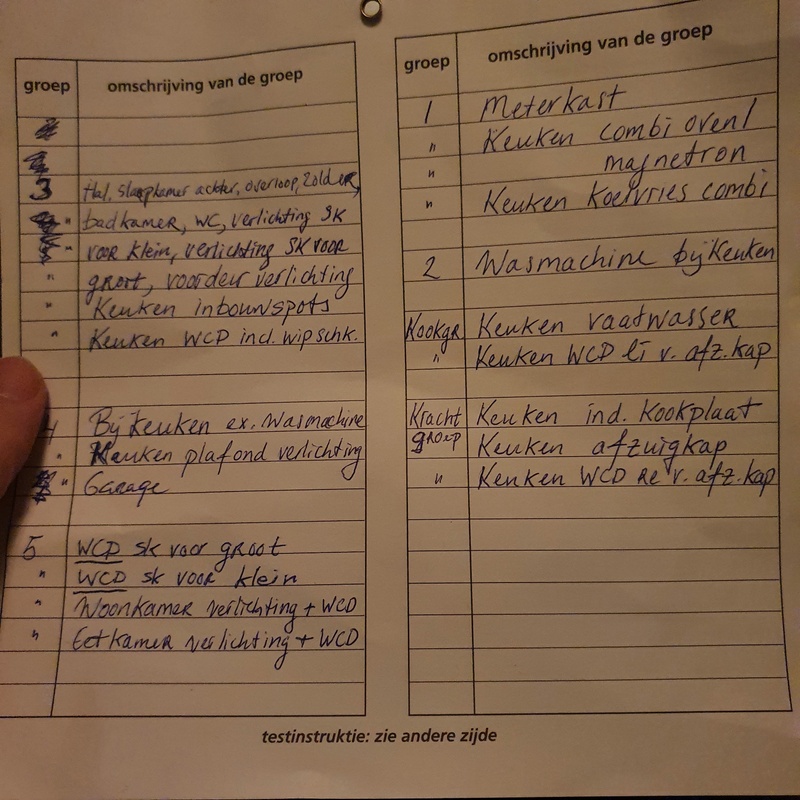 groep omschrijving van de groep
3 Hal, slaapkamer achter, overloop, zolder,
" badkamer, WC, verlichting SK
" voor klein, verlichting SK voor
" groot, voordeur verlichting
" Keuken inbouwspots
" Keuken WCD incl. wip schk.
4 Bijkeuken ex. wasmachine
" Keuken plafond verlichting
" Garage
5 WCD sk voor groot
" WCD sk voor klein
" Woonkamer verlichting + WCD
" Eetkamer verlichting + WCD
groep omschrijving van de groep
1 Meterkast
" Keuken combi oven/
" magnetron
" Keuken Koelvries combi
2 Wasmachine bijkeuken
Kookgr Keuken vaatwasser
" Keuken WCD li v. afz.kap
Kracht Keuken ind. Kookplaat
groep Keuken afzuigkap
" Keuken WCD re v. afz.kap
testinstruktie: zie andere zijde